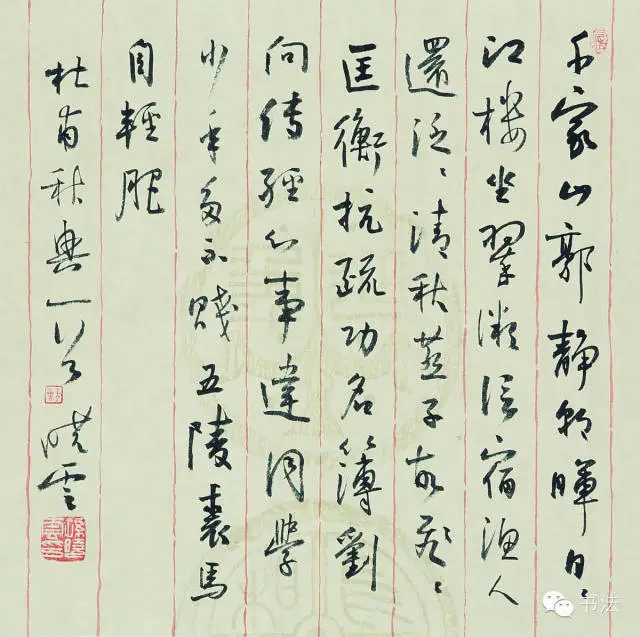 千家山郭靜朝暉日〻
江楼坐翠微信宿渔人
還泛〻清秋燕子故飛〻
匡衡抗疏功名簿劉
向傳經心事違同學
少年多不賤五陵裘馬
自輕肥
杜甫秋興一首 曉雲
书法